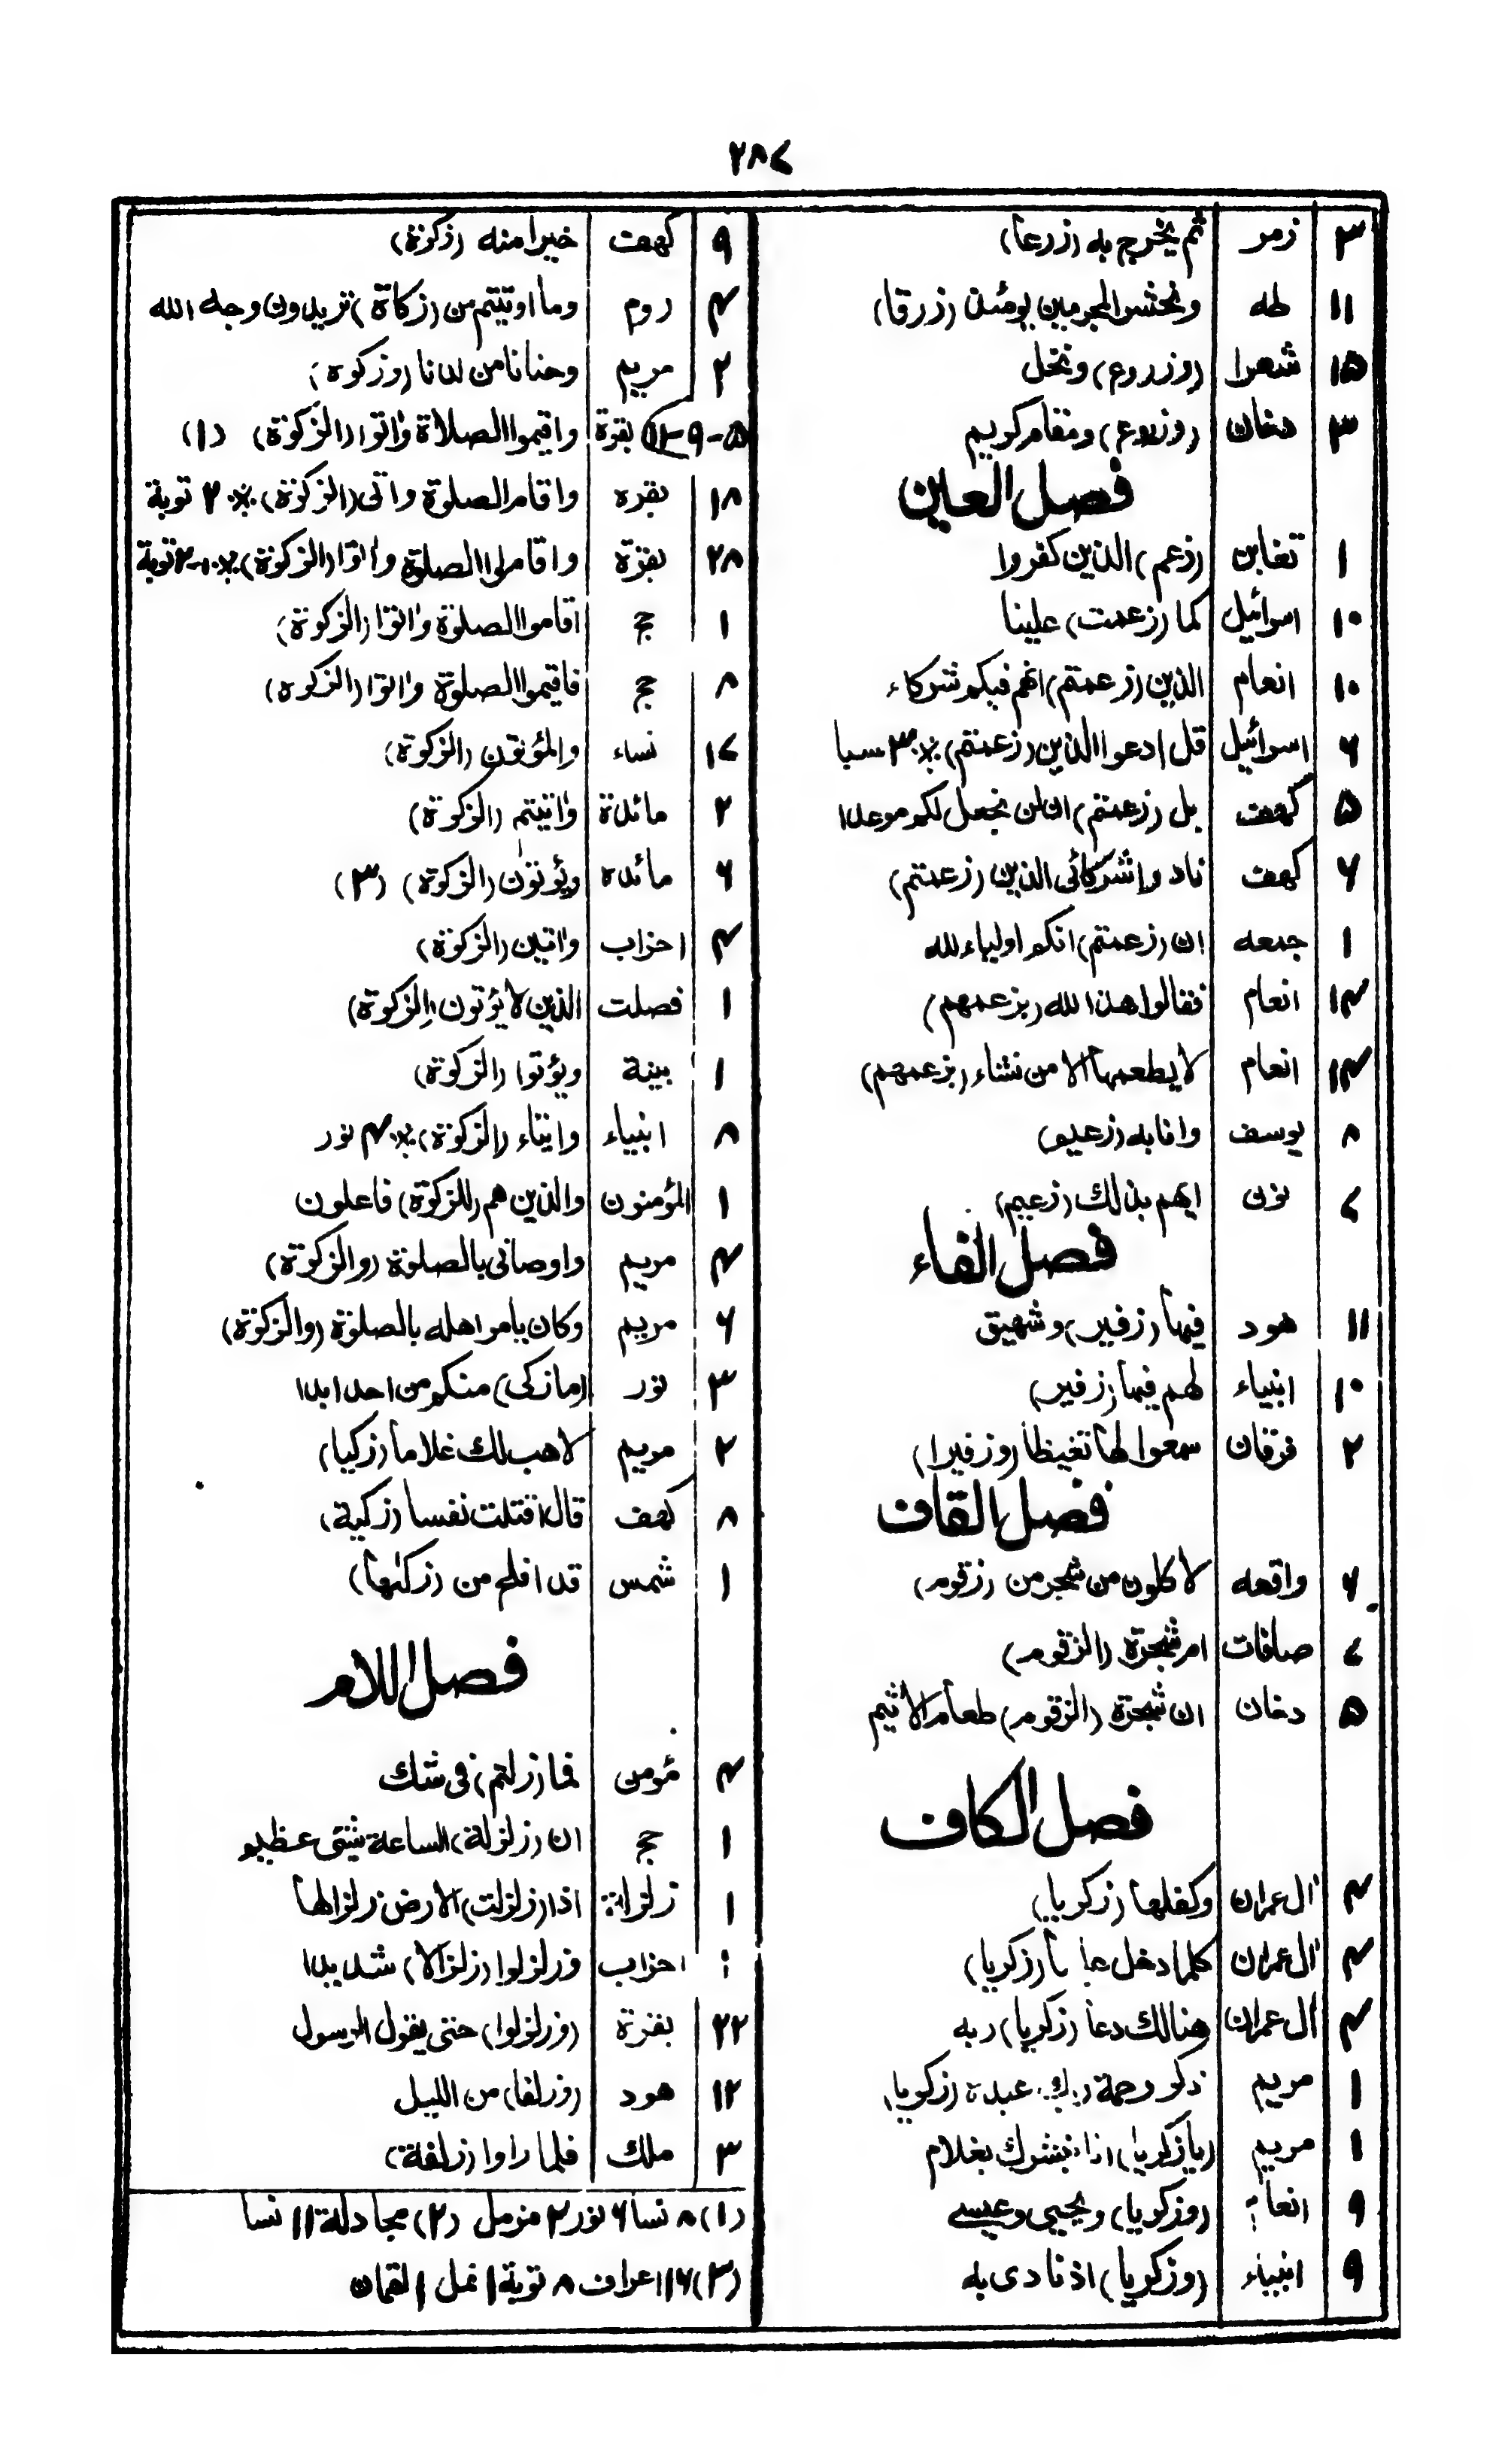 ۲۸۷
۳ زمر ثم يخرج به (زرعا)
۱۱ طه ونحشر المجرمين يومئذ (زرقا)
۱۵ شعرا (وزروع) ونخل
۳ دخان (وزروع) ومقام كريم
فصل العين
۱ تغابن (زعم) الذين كفروا
۱۰ اسرائيل كما (زعمت) علينا
۱۰ انعام الذين (زعمتم) انهم فيكم شركاء
۶ اسرائيل قل ادعوا الذين (زعمتم) ٪ ۳ سبا
۵ كهف بل (زعمتم) ان لن نجعل لكم موعدا
۷ كهف نادوا شركائى الذين (زعمتم)
۱ جمعه ان (زعمتم) انكم اولياء لله
۱۴ انعام فقالوا هذا لله (بزعمهم)
۱۴ انعام لا يطعمها الا من نشاء (بزعمهم)
۸ يوسف وانا به (زعيم)
۷ نون ايهم بذالك (زعيم)
فصل الفاء
۱۱ هود فيها (زفير) وشهيق
۱۰ انبياء لهم فيها (زفير)
۲ فرقان سمعوا لها تغيظا (وزفيرا)
فصل القاف
۶ واقعه لاكلون من شجر من (زقوم)
۷ صافات ام شجرة (الزقوم)
۵ دخان ان شجرة (الزقوم) طعام الاثيم
فصل الكاف
۴ ال عمران وكفلها (زكريا)
۴ ال عمران كلما دخل (زكريا)
۴ ال عمران هنالك دعا (زكريا) ربه
۱ مريم ذكر رحمة ربك عبده (زكريا)
۱ مريم (يا زكريا) انا نبشرك بغلام
۹ انعام (وزكريا) ويحيى وعيسے
۹ انبياء (وزكريا) اذ نادى به
۹ كهف خيرا منه (زكوة)
۴ روم وما اوتيتم من (زكاة) تريدون وجه الله
۲ مريم وحنانا من لدنا (وزكوة)
۵-۹-۱۳ بقرة واقيموا الصلاة واٰتوا (الزكوة) (۱)
۱۸ بقره واقام الصلوة واتى (الزكوة) ٪ ۲ توبة
۲۸ بقرة واقاموا الصلوة واٰتوا (الزكوة) ٪ ۱-۲ توبة
۱ حج اقاموا الصلوة واٰتوا (الزكوة)
۸ حج فاقيموا الصلوة واٰتوا (الزكوة)
۱۷ نساء والمؤتون (الزكوة)
۲ مائدة واٰتيتم (الزكوة)
۶ مائده ويؤتون (الزكوة) (۳)
۴ احزاب واٰتين (الزكوة)
۱ فصلت الذين لا يؤتون (الزكوة)
۱ بينة ويؤتوا (الزكوة)
۸ انبياء وايتاء (الزكوة) ٪ ۴ نور
۱ المؤمنون والذين هم (للزكوة) فاعلون
۴ مريم واوصانى بالصلوة (والزكوة)
۶ مريم وكان يامر اهله بالصلوة (والزكوة)
۳ نور (ما زكى) منكم من احد ابدا
۲ مريم لاهب لك غلاما (زكيا)
۸ كهف قال اقتلت نفسا (زكية)
۱ شمس قد افلح من (زكىٰها)
فصل اللام
۴ مؤمن فما (زلتم) فى شك
۱ حج ان (زلزلة) الساعة شئ عظيم
۱ زلزلة اذا (زلزلت) الارض زلزالها
احزاب وزلزلوا (زلزالا) شديدا
۲۲ بقرة (وزلزلوا) حتى يقول الرسول
۱۲ هود (وزلفا) من الليل
۳ ملك فلما راوا (زلفة)
(۱) ۸ نسا ۶ نور ۲ مزمل (۲) مجادلة ۱۱ نسا
(۳) ۱۶ اعراف ۸ توبة ۱ نمل ۱ لقمان